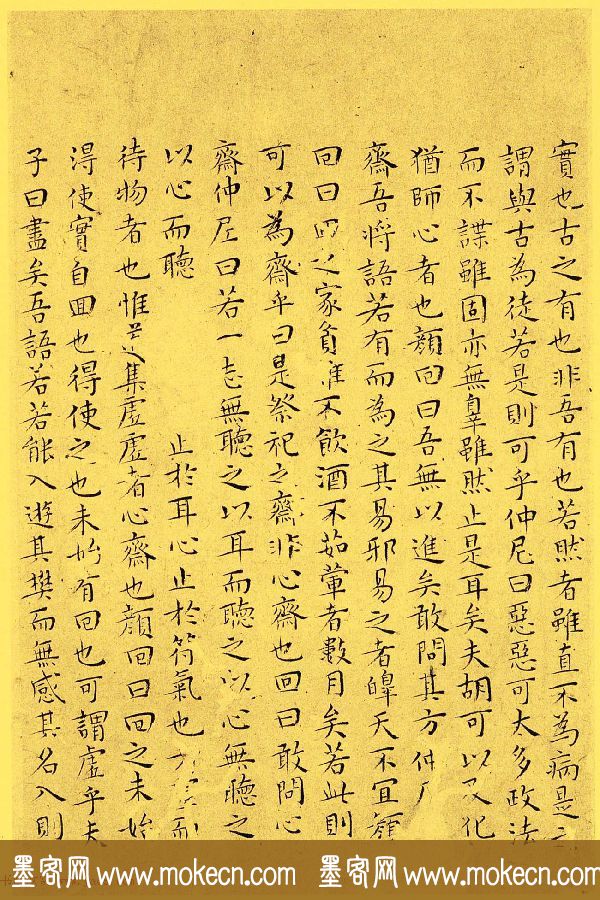 實也古之有也非吾有也若然者雖直不為病是之
謂與古為徒若是則可乎仲尼曰惡惡可大多政法
而不諜雖固亦無辠雖然止是耳矣夫胡可以及化
猶師心者也顏回曰吾無以進矣敢問其方仲尼
齋吾將語若有而為之其易邪易之者皞天不宜顏
回曰回之家貧唯不飲酒不茹葷者數月矣若此則
可以為齋乎曰是祭祀之齋非心齋也回曰敢問心
齋仲尼曰若一志無聽之以耳而聽之以心無聽之
以心而聽 止於耳心止於符氣也 虛而
待物者也惟道集虛虛者心齋也顏回曰回之未始
得使實自回也得使之也未始有回也可謂虛乎夫
子曰盡矣吾語若若能入遊其樊而無感其名入則
墨客网 www.mokecn.com 墨客网 www.mokecn.com